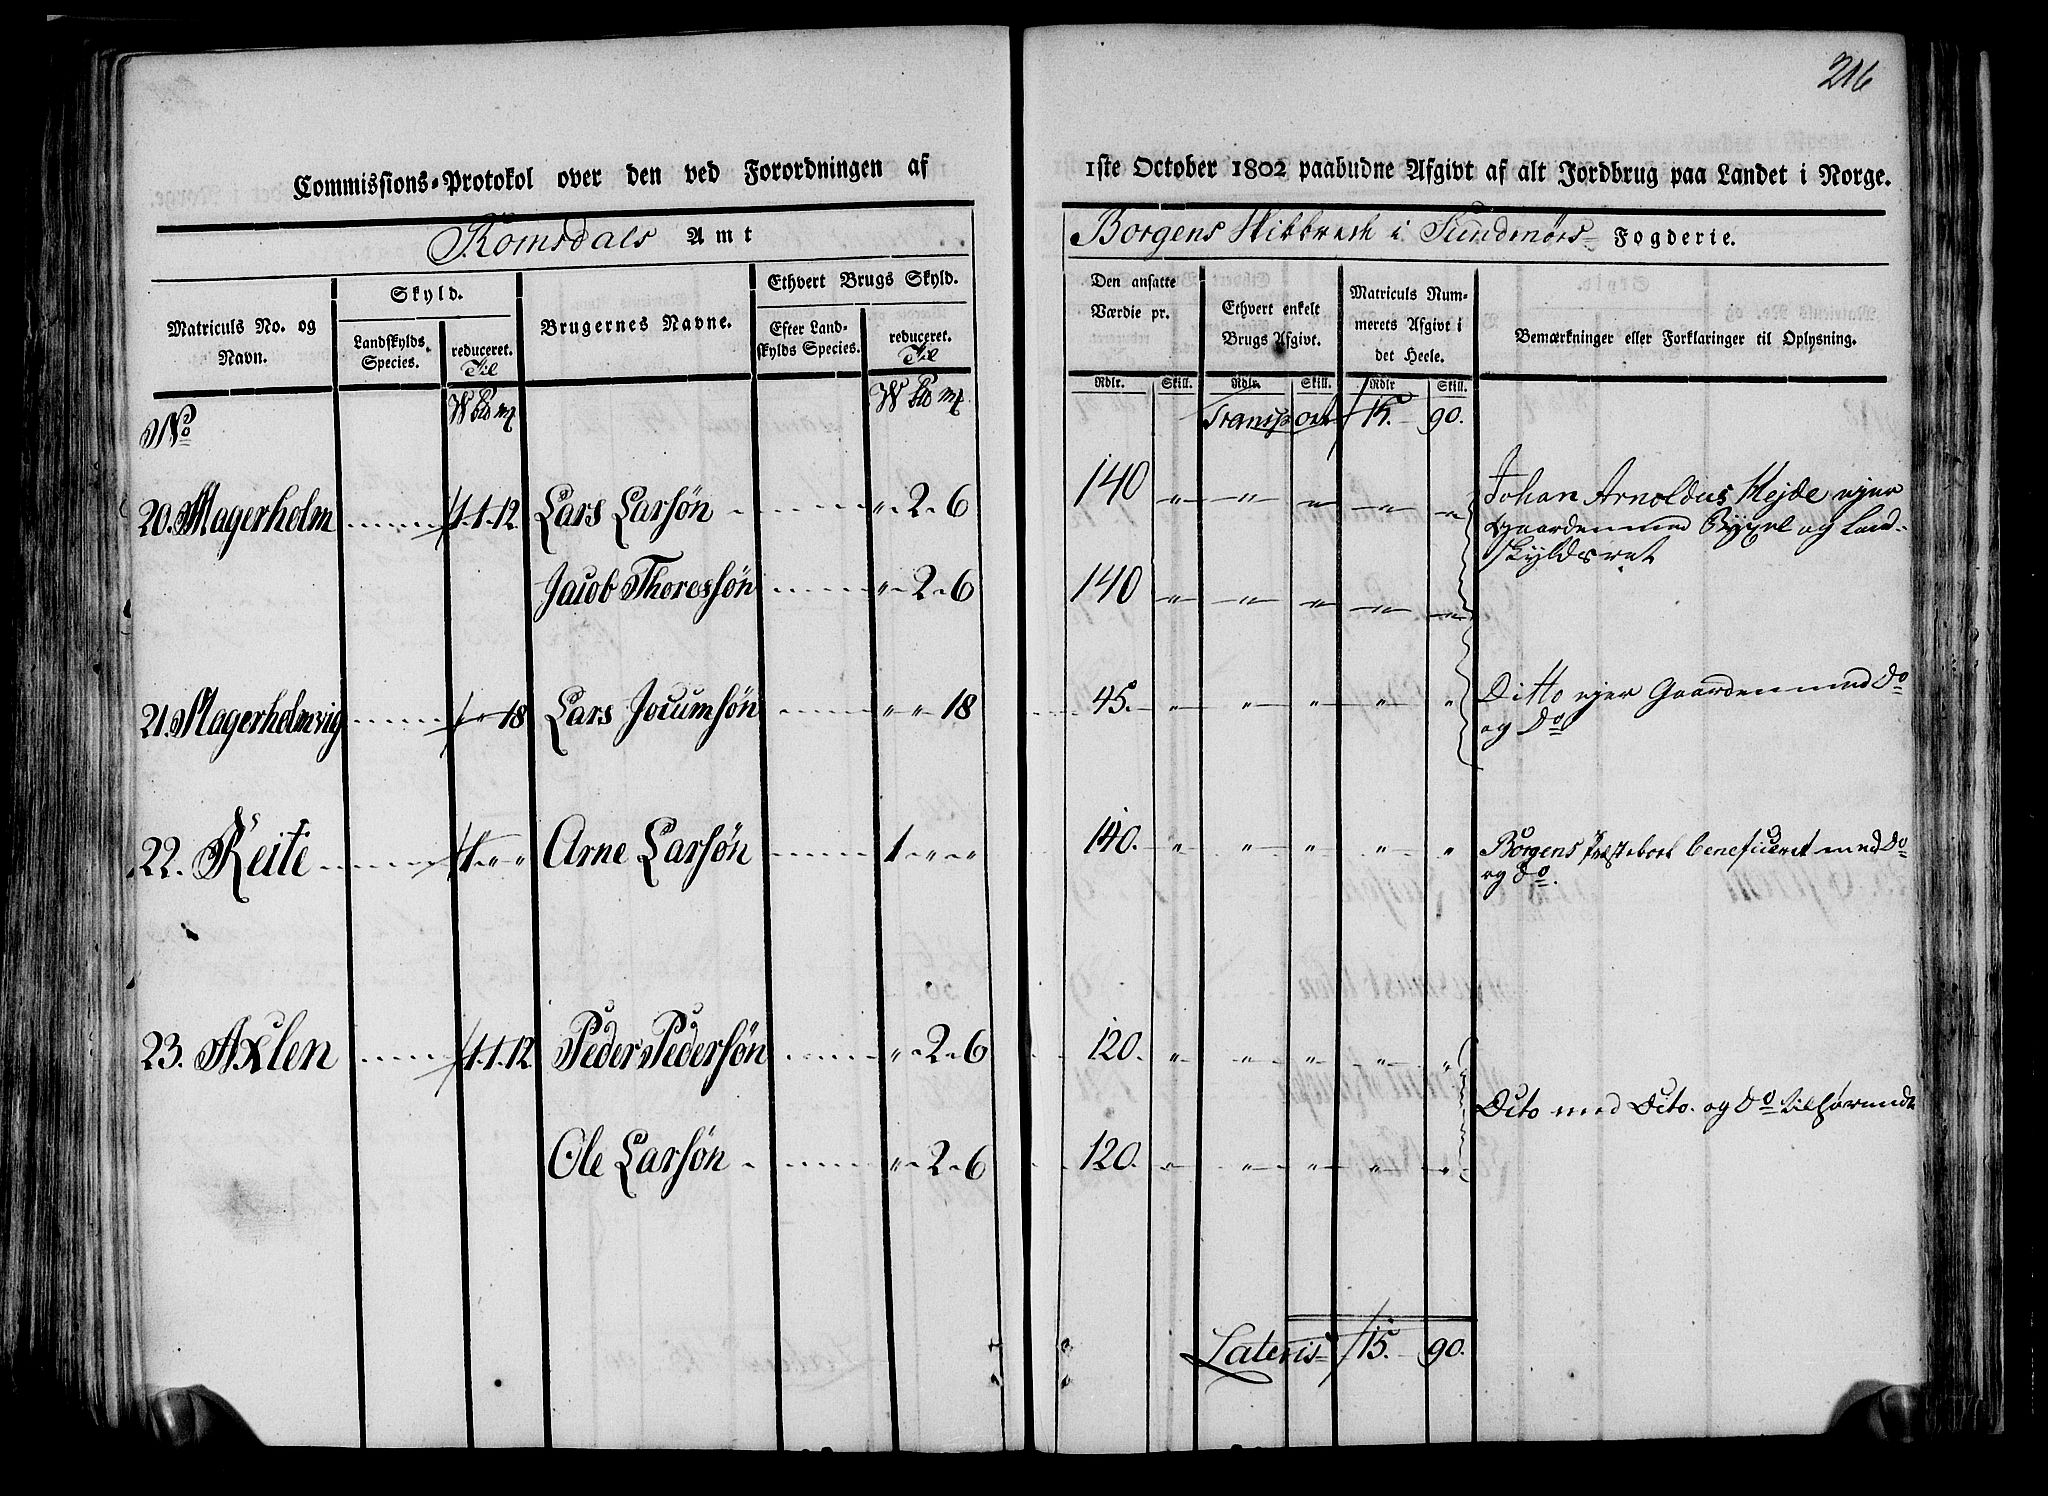 216
Commissions-Protokol over den ved Forordningen af 1ste October 1802 paabudne Afgivt af alt Jordbrug paa Landet i Norge.
Romsdals Amt Borgens Skibbrede i Sundmørs Fogderie.
Matriculs No. og Navn. Skyld. Landskylds Species. reduceret. Til Brugernes Navne. Ethvert Brugs Skyld. Efter Landskylds Species. reduceret. Til
Den ansatte Værdie pr. Ethvert enkelt Brugs Afgivt. Matriculs Nummerets Afgivt i det Heele. Bemærkninger eller Forklaringer til Oplysning.
Rdlr. Skill. Rdlr. Skill. Rdlr Skill.
No W Pd mk W Pd mk Transport 15. 90.
20. Magerholm 1.1.12 Lars Larsøn " 2 " 6 140 " " " " " Johan Arnoldus Hejde ejer
Gaarden med Bygsel og Land-
skyldsret
Jacob Thoressøn " 2 " 6 140 " " " " "
21. Magerholmvig " 18 Lars Jocumsøn " " 18 45. " " " " " Ditto ejer Gaarden med Do
og Do
22. Reite 1 " " Arne Larsøn 1 " " 140. " " " " " Borgens Præstebord beneficeret med Do
og do.
23. Axlen 1.1.12. Peder Pedersøn " 2 " 6 120. " " " " "
Dito med Dito. og Do tilhørende
Ole Larsøn " 2 " 6 120. " " " " "
Lateris 15. 90.